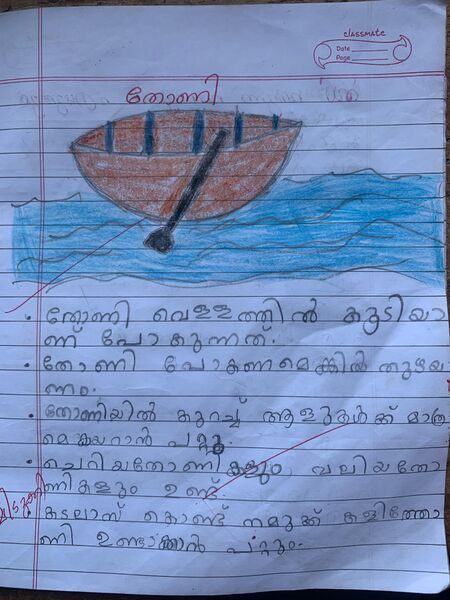 classmate
Date
Page
തോണി
• തോണി വെള്ളത്തിൽ കൂടിയാ
ണ് പോകുന്നത്.
• തോണി പോകണമെങ്കിൽ തുഴയ
ണം.
• തോണിയിൽ കുറച്ച് ആളുകൾക്ക് മാത്ര
മെകയറാൻ പറ്റൂ.
• ചെറിയതോണികളും വലിയതോ
ണികളും ഉണ്ട്.
കടലാസ് കൊണ്ട് നമുക്ക് കളിത്തോ
ണി ഉണ്ടാക്കാൻ പറ്റും.